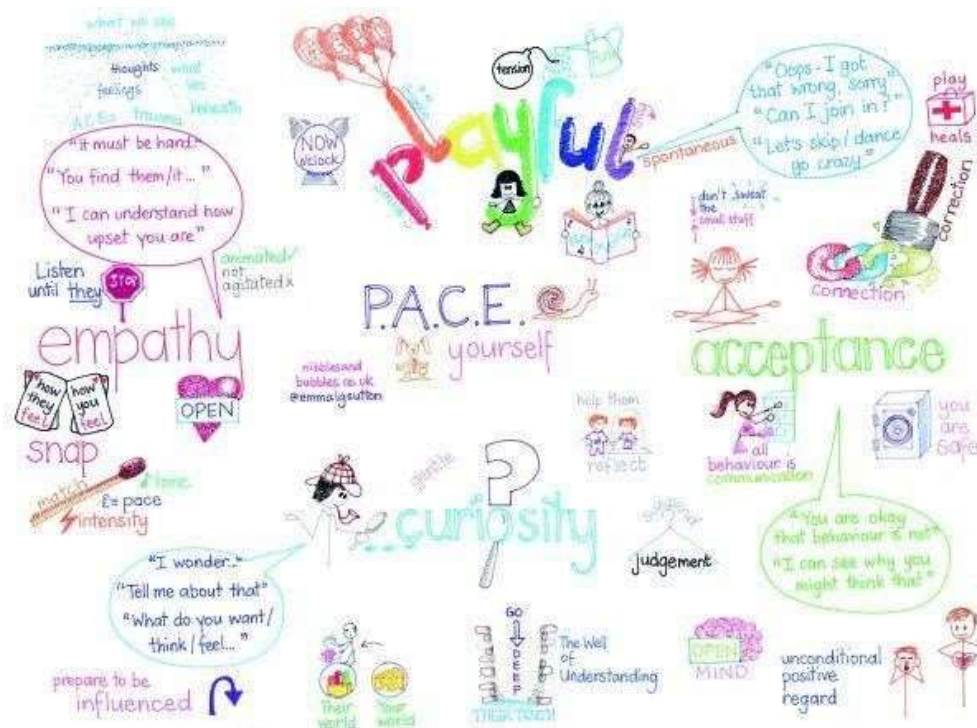 what you see
thoughts what
feelings lies
ACEs trauma beneath
"it must be hand."
"You find them/it..."
"I can understand how
upset you are"
Listen
until they
STOP
animated ✓
not
agitated x
empathy
how
they
feel
how
you
feel
snap
OPEN
match
tone
pace
intensity
NOW
O'CLOCK
tension
playful
spontaneous
"Oops - I got
that wrong, sorry"
"Can I join in?"
"Let's skip/dance
go crazy"
play
heals
don't 'sweat'
the
small stuff
correction
connection
P.A.C.E.
yourself
nibblesand
bubbles.co.uk
@emmalgsutton
acceptance
help them
reflect
all
behaviour is
communication
you
are
safe
gentle
?
...curiosity
judgement
"You are okay
that behaviour is not"
"I can see why you
might think that"
"I wonder.."
"Tell me about that"
"What do you want/
think/feel..."
prepare to be
influenced
Their
world
Your
world
GO
DEEP
The Well
of
Understanding
OPEN
MIND
unconditional
positive
regard